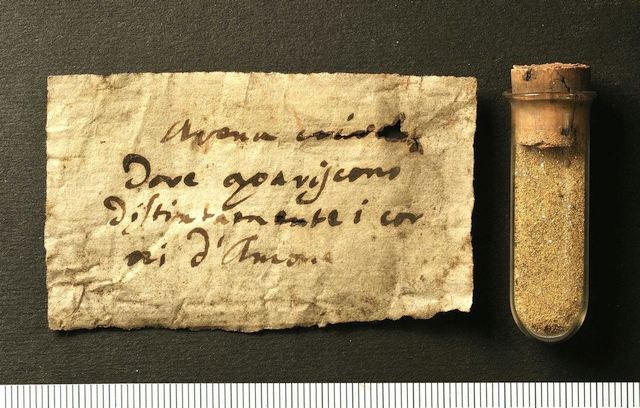 Arena
Dove apariscono
distintamente i cor
ni d'Amone